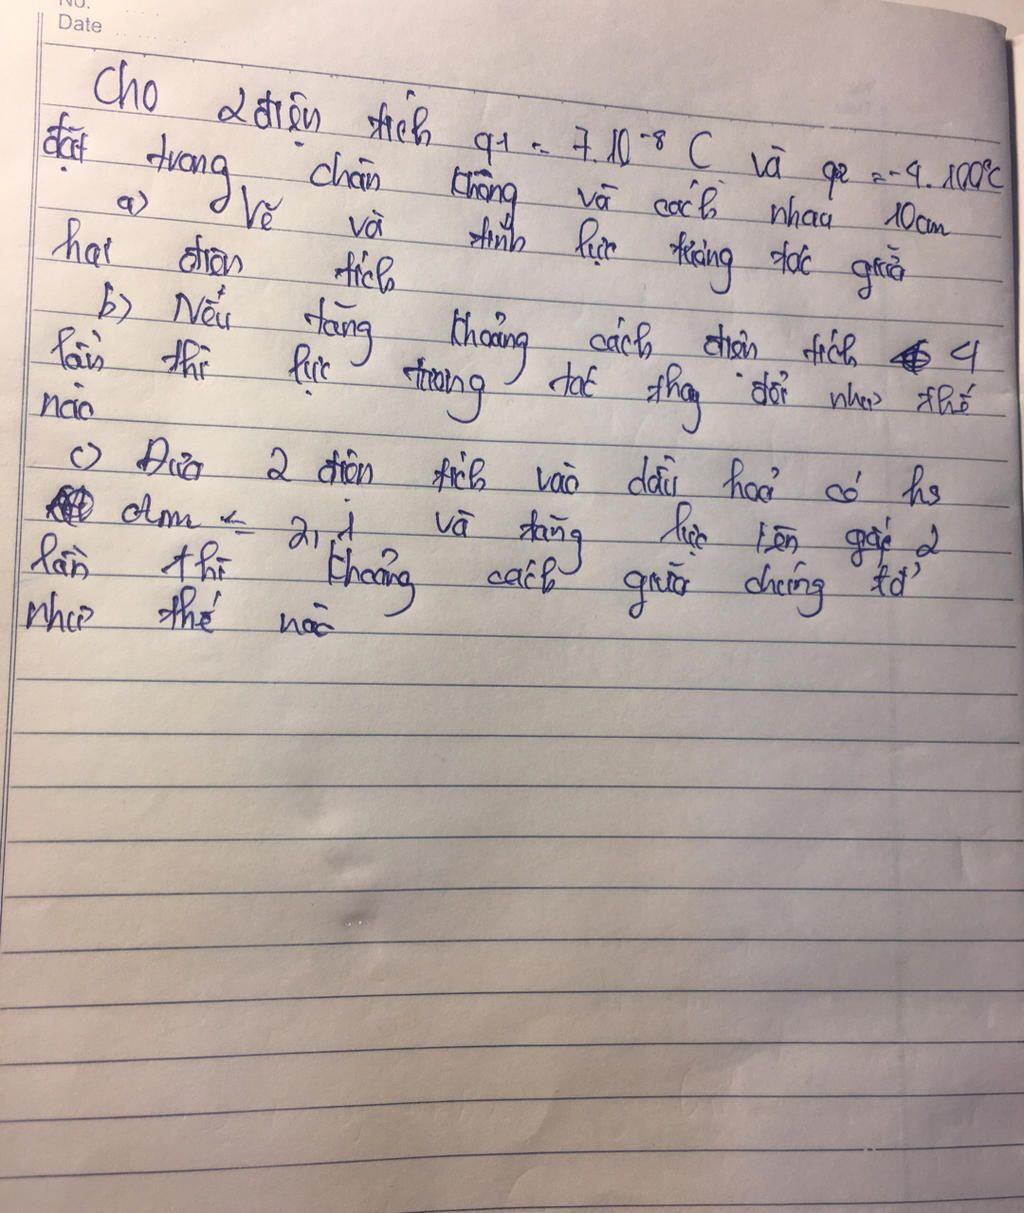 No.
Date
Cho 2 điện tích q1 = 7.10⁻⁸ C và q2 = -4.
đặt trong chân không và cách nhau 10cm
a) Vẽ và tính lực tương tác giữa
hai điện tích
b) Nếu tăng khoảng cách điện tích 4
lần thì lực tương tác thay đổi như thế
nào
c) Đưa 2 điện tích vào dầu hoả có hs
= 2,1 và tăng lực lên gấp 2
lần thì khoảng cách giữa chúng
như thế nào